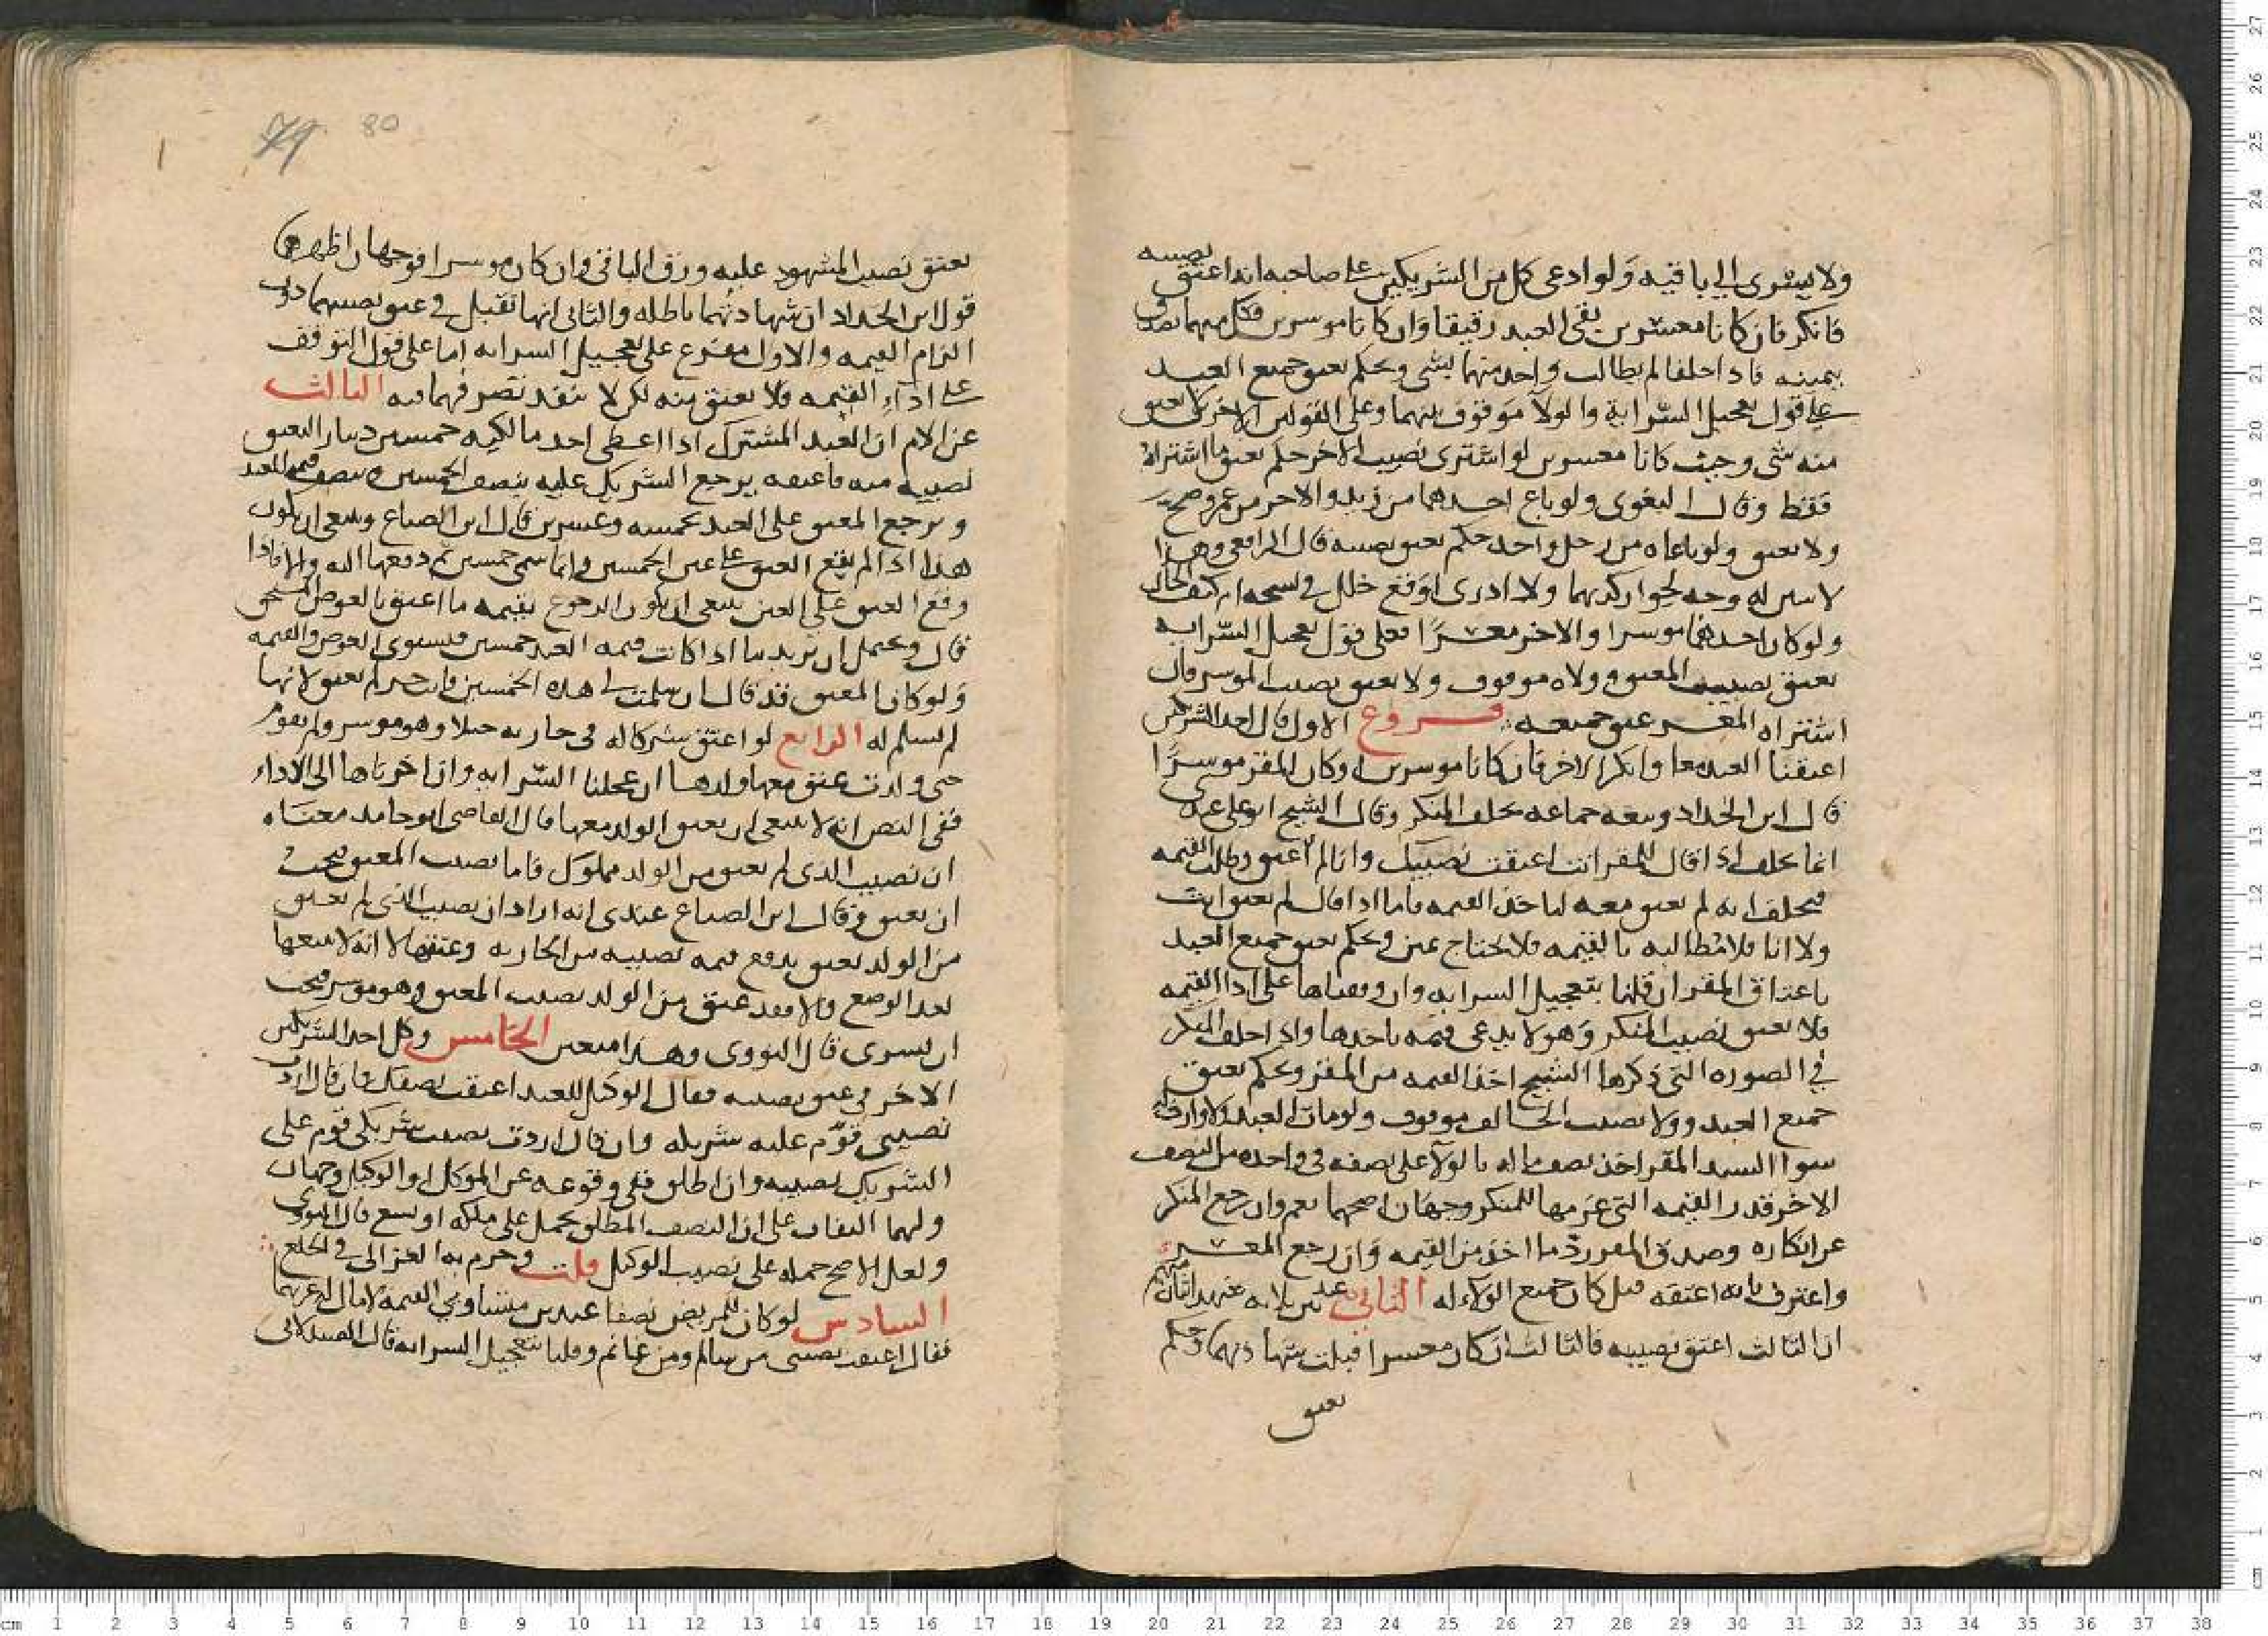 ولا يسرى الي باقيه ولو ادعى كل من الشريكين على صاحبه انه اعتق نصيبه
فانكر فان كانا معسرين بقى العبد رقيقا وان كانا موسرين فكل منهما يصدق
بيمينه فاذا حلفا لم يطالب واحد منهما بشى ويحكم بعتق جميع العبد
على قول تعجيل السراية والولآ موقوف بينهما وعلى القولين الاخرين لا يعتق
منه شى وحيث كانا معسرين لو اشترى نصيب الاخر حكم بعتق ما اشتراه
فقط وقال البغوى ولو باع احدهما من زيد والاخر من عمرو صح
ولا يعتق ولو باعاه من رجل واحد حكم بعتق نصيبه قال الرافعى وهذا
لا يبين له وجه لجوار كذبهما ولا ادرى اوقع خلل في نسخه ام كيف الحال
ولو كان احدهما موسرا والاخر معسرًا فعلى قول تعجيل السرايه
يعتق نصيب المعسر وولاه موقوف ولا يعتق نصيب الموسر فان
اشتراه المعسر عتق جميعه فروع الاول قال احد الشريكين
اعتقنا العبد معا وانكر الاخر فان كانا موسرين او كان المقر موسرًا
قال ابن الحداد وتبعه جماعه يحلف المنكر وقال الشيخ ابو على عندى
انما يحلف اذا قال للمقر انت اعتقت نصيبك وانا لم اعتق وطلب القيمه
فيحلف انه لم يعتق معه لياخذ القيمه فاما اذا قال لم تعتق انت
ولا انا فلا مطالبه بالقيمه فلا يحتاج يمين ويحكم بعتق جميع العبد
باعتاق المقر ان قلنا بتعجيل السرايه وان وقفناها على ادا القيمه
فلا يعتق نصيب المنكر وهو لا يدعى قيمه ياخدها واذا حلف المنكر
في الصوره التى ذكرها الشيخ اخذ القيمه من المقر وحكم بعتق
جميع العبد وولا نصيب الحالف موقوف ولو مات العبد ولا وارث له
سوا السيد المقر اخذ نصف ماله بالولآ على نصفه وفى اخده من النصف
الاخر قدر القيمه التى غرمها للمنكر وجهان اصحهما نعم وان رجع المنكر
عن انكاره وصدق المقر رد ما اخذ من القيمه وان رجع المعسر
واعترف بانه اعتقه قبل كان جميع الولاء له الثانى عبد بين ثلاثه شهد اثنان منهم
ان الثالث اعتق نصيبه فالثالث ان كان معسرا قبلت شهادتهما وحكم
بعتق
80
79
بعتق نصيب المشهود عليه ورق الباقى وان كان موسرا فوجهان اظهرهما
قول ابن الحداد ان شهادتهما باطله والثانى انها تقبل في عتق نصيبهما دون
الزام القيمه والاول مفرع على تعجيل السرايه اما على قول التوقف
على اداء القيمه فلا يعتق منه لكن لا ينفد تصرفهما فيه الثالث
عن الام ان العبد المشترك اذا اعطى احد مالكيه خمسين دينارا ليعتق
نصيبه منه فاعتقه يرجع الشريك عليه بنصف الخمسين وبنصف قيمه العبد
ويرجع المعتق على العبد بخمسه وعشرين قال ابن الصباغ وينبغى ان يكون
هذا اذا لم يقع العتق على عين الخمسين وانما سمى خمسين ثم دفعها اليه والا فاذا
وقع العتق على العين ينبغى ان يكون الرجوع بقيمه ما اعتق بالعوض المستحق
قال ويحتمل ان يريد ما اذا كانت قيمه العبد خمسين فيستوى العوض والقيمه
ولو كان المعتق قد قال ان سلمت لى هذه الخمسين فانت حر لم يعتق لانها
لم تسلم له الرابع لو اعتق شركا له في جاريه حبلا وهو موسر ولم يقوم
حتى ولدت عتق معها ولدها ان عجلنا السرايه وان اخرناها الى الاداء
ففى النص انه لا ينبغى ان يعتق الولد معها قال القاضى ابو حامد معناه
ان نصيب الذى لم يعتق من الولد مملوك فاما نصيب المعتق فيجب
ان يعتق وقال ابن الصباغ عندى انه اراد ان نصيب الذى لم يعتق
من الولد يعتق بدفع قيمه نصيبه من الجاريه وعتقها لا انه لا يتبعها
بعد الوضع والا فقد عتق من الولد نصيب المعتق وهو موسر فيجب
ان يسرى قال النووى وهذا متعين الخامس وكل احد الشريكين
الاخر في عتق نصيبه فقال الوكيل للعبد اعتقت نصفك فان قال اردت
نصيبى قوم عليه شريكه وان قال اردت نصيب شريكى قوم على
الشريك نصيبه وان اطلق ففى وقوعه عن الموكل او الوكيل وجهان
ولهما التفات على ان النصف المطلق يحمل على ملكه او يشيع قال النووى
ولعل الاصح حمله على نصيب الوكيل قلت وجزم به الغزالى في الخلع
السادس لو كان للمريض نصفا عبدين متساويى القيمه لا مال له غيرهما
فقال اعتقت نصيبى من سالم ومن غانم وقلنا بتعجيل السرايه قال الصيدلانى